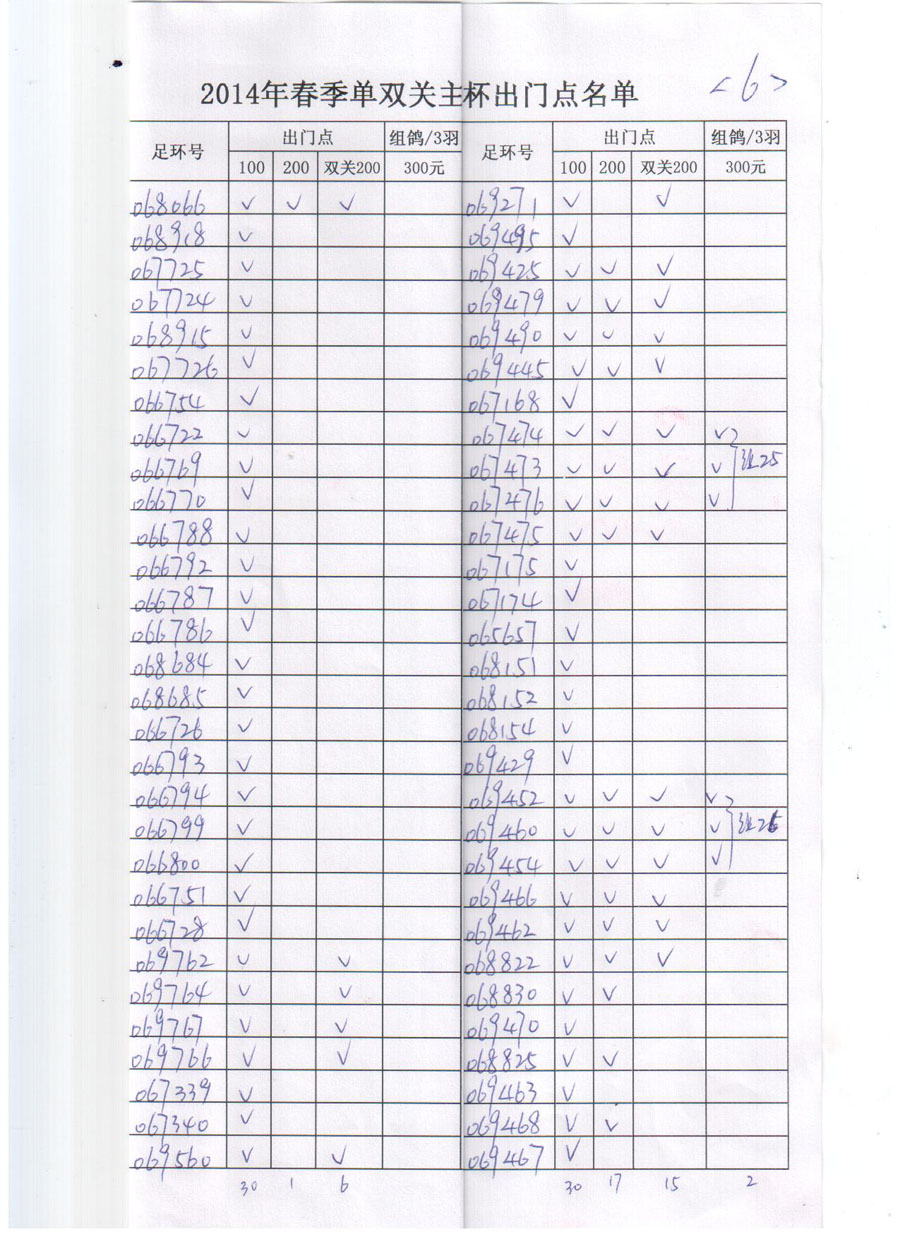 2014年春季单双关主杯出门点名单 <6>
足环号 出门点 组鸽/3羽 足环号 出门点 组鸽/3羽
100 200 双关200 300元 100 200 双关200 300元
068066 ✓ ✓ ✓ 069271 ✓ ✓
068918 ✓ 069495 ✓
067725 ✓ 069425 ✓ ✓ ✓
067724 ✓ 069479 ✓ ✓ ✓
068915 ✓ 069490 ✓ ✓ ✓
067726 ✓ 069445 ✓ ✓ ✓
066754 ✓ 067168 ✓
066722 ✓ 067474 ✓ ✓ ✓ ✓
066769 ✓ 067473 ✓ ✓ ✓ ✓ 组25
066770 ✓ 067476 ✓ ✓ ✓ ✓
066788 ✓ 067475 ✓ ✓ ✓
066792 ✓ 067175 ✓
066787 ✓ 067174 ✓
066786 ✓ 065657 ✓
068684 ✓ 068151 ✓
068685 ✓ 068152 ✓
066726 ✓ 068154 ✓
066793 ✓ 069429 ✓
066794 ✓ 069452 ✓ ✓ ✓ ✓
066799 ✓ 069460 ✓ ✓ ✓ ✓ 组26
066800 ✓ 069454 ✓ ✓ ✓ ✓
066751 ✓ 069466 ✓ ✓ ✓
066728 ✓ 069462 ✓ ✓ ✓
069762 ✓ ✓ 068822 ✓ ✓ ✓
069764 ✓ ✓ 068830 ✓ ✓
069767 ✓ ✓ 069470 ✓
069766 ✓ ✓ 068825 ✓ ✓
067339 ✓ 069463 ✓
067340 ✓ 069468 ✓ ✓
069560 ✓ ✓ 069467 ✓
30 1 6 30 17 15 2